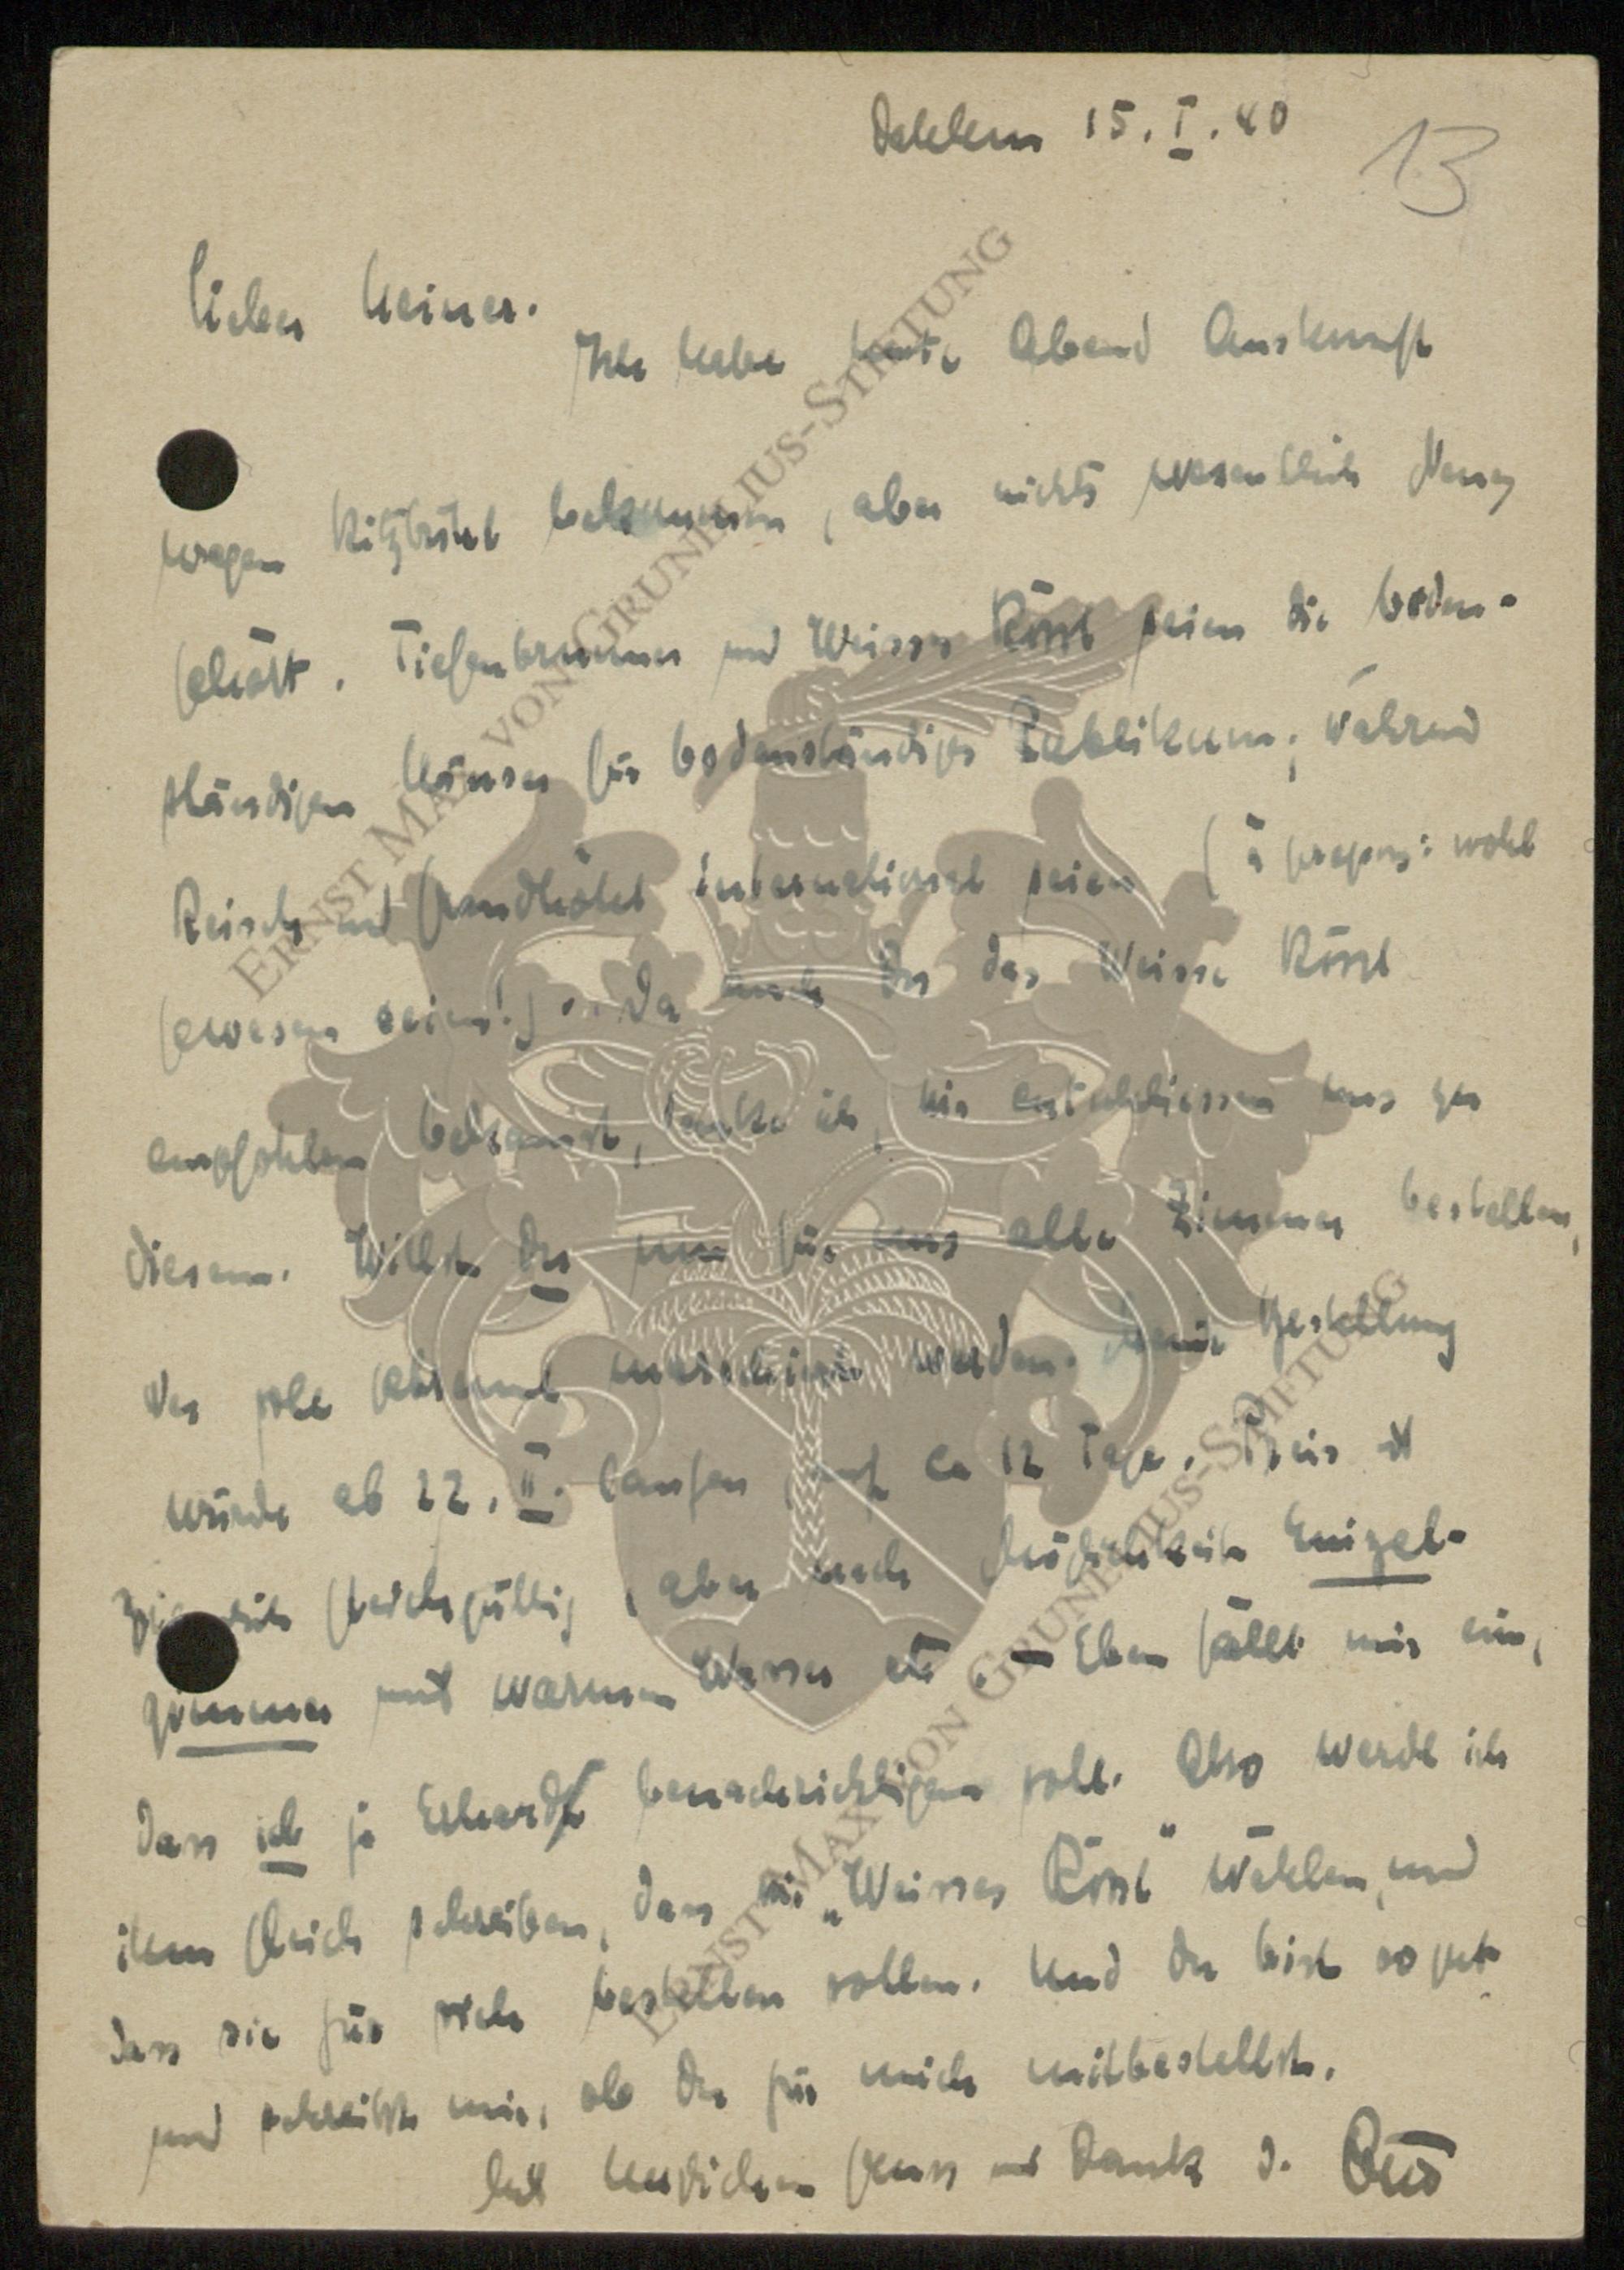 Dahlem 15. I. 40
13
Lieber Heiner.
Ich habe heute Abend Auskunft
wegen Kitzbühel bekommen, aber nichts wesentlich Neues
gehört. Tiefenbrunner und Weisses Rössl seien die boden-
ständigen Häuser für bodenständiges Publikum, während
Reisch und Grandhôtel international seien (à propos: wohl
gewesen seien!). Da auch Du das Weisse Rössl
empfohlen bekamst, denke ich, wir entschliessen uns zu
diesem. Willst Du nun für uns alle Zimmer bestellen,
Meine Bestellung
würde ab 22. II. laufen, auf ca 12 Tage. Preis ist
ziemlich gleichgültig, aber nach Möglichkeit Einzel-
zimmer mit warmem Wasser etc. – Eben fällt mir ein,
dass ich ja benachrichtigen soll. Also werde ich
ihm gleich schreiben, dass wir „Weisses Rössl" wählen, und
dass sie für sich bestellen sollen. Und Du bist so gut
und schreibst mir, ob Du für mich mitbestellst.
Mit herzlichem Gruss und Dank D. Otto
ERNST MAX VON GRUNELIUS-STIFTUNG
ERNST MAX VON GRUNELIUS-STIFTUNG